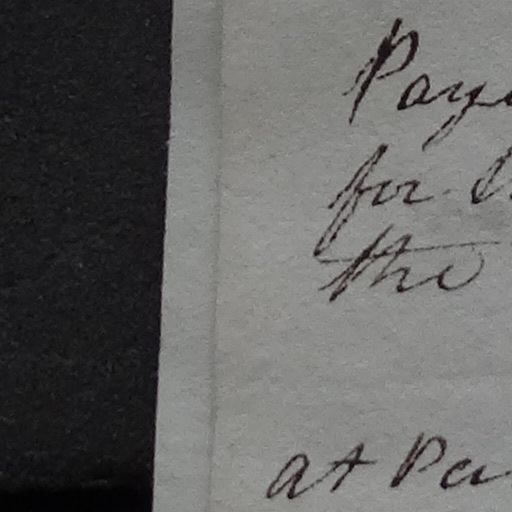 Pay
for
the
at Pa